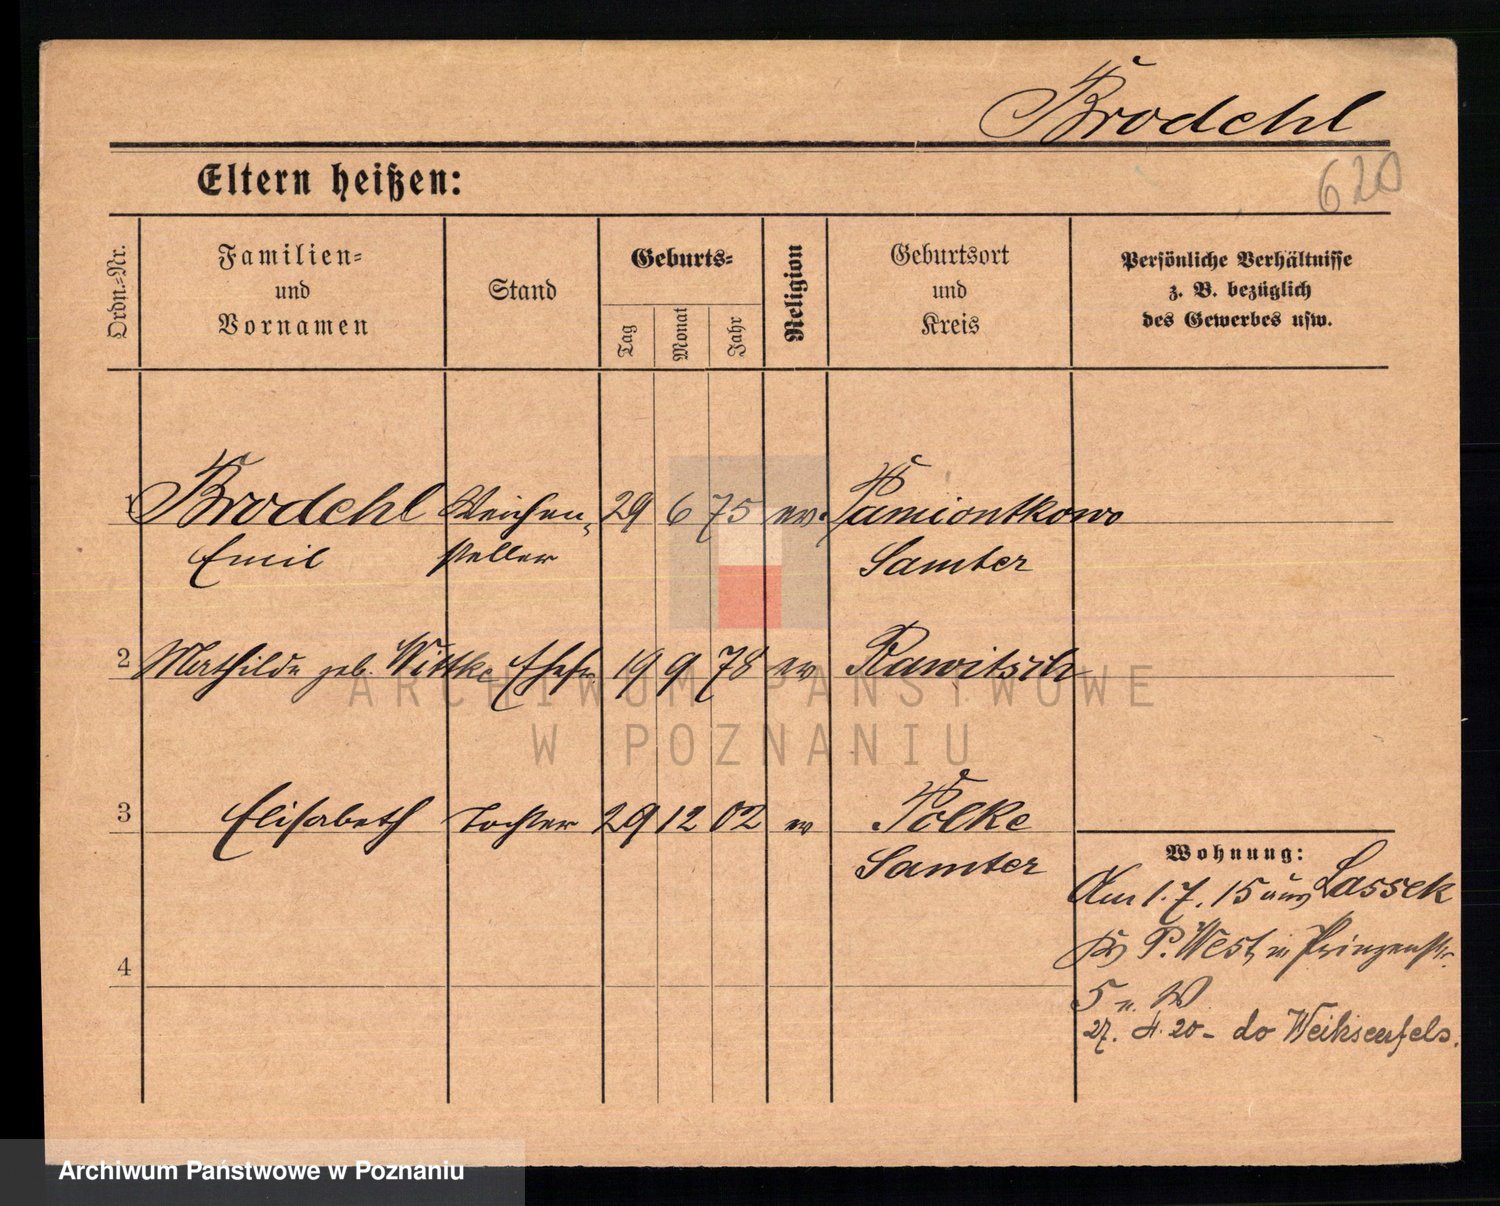 Brodehl
620
Eltern heißen:
Ordn.-Nr.
Familien-
und
Vornamen
Stand
Geburts-
Tag
Monat
Jahr
Religion
Geburtsort
und
Kreis
Persönliche Verhältnisse
z. B. bezüglich
des Gewerbes usw.
1 Brodehl Weichen- 29 6 75 ev. Pamiontkowo
Emil steller Samter
2 Mathilde geb. Wittke Ehefr. 19 9 78 ev Rawitsch
3 Elisabeth Tochter 29 12 02 ev Polke
Samter
4
Wohnung:
Am 1.7.15 aus Lassek
Kr P. West n Prinzenstr.
5 n. W.
27. 4. 20 - do
ARCHIWUM PAŃSTWOWE
W POZNANIU
Archiwum Państwowe w Poznaniu